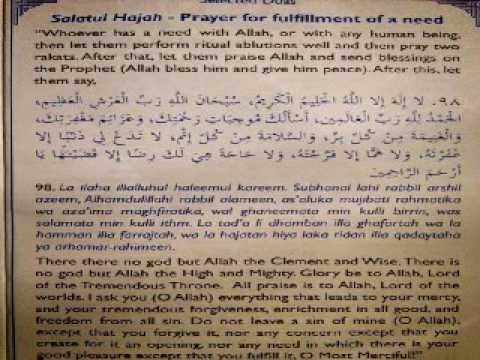 Selected Duas
Salatul Hajah - Prayer for fulfillment of a need
"Whoever has a need with Allah, or with any human being,
then let them perform ritual ablutions well and then pray two
rakats. After that, let them praise Allah and send blessings on
the Prophet (Allah bless him and give him peace). After this, let
them say,
٩٨. لَا إِلَهَ إِلَّا اللَّهُ الْحَلِيمُ الْكَرِيمُ، سُبْحَانَ اللَّهِ رَبِّ الْعَرْشِ الْعَظِيمِ،
الْحَمْدُ لِلَّهِ رَبِّ الْعَالَمِينَ، أَسْأَلُكَ مُوجِبَاتِ رَحْمَتِكَ، وَعَزَائِمَ مَغْفِرَتِكَ،
وَالْغَنِيمَةَ مِنْ كُلِّ بِرٍّ، وَالسَّلَامَةَ مِنْ كُلِّ إِثْمٍ، لَا تَدَعْ لِي ذَنْبًا إِلَّا
غَفَرْتَهُ، وَلَا هَمًّا إِلَّا فَرَّجْتَهُ، وَلَا حَاجَةً هِيَ لَكَ رِضًا إِلَّا قَضَيْتَهَا يَا
أَرْحَمَ الرَّاحِمِينَ
98. La ilaha illalluhul haleemul kareem. Subhanal lahi rabbil arshil
azeem, Alhamdulillahi rabbil alameen, as'aluka mujibati rahmatika
wa aza'ima maghfiratika, wal ghaneemata min kulli birrin, was
salamata min kulli ithm. La tad'a li dhamban illa ghafartah wa la
hamman illa farrajtah, wa la hajatan hiya laka ridan illa qadaytaha
ya arhamar-rahimeen.
There there no god but Allah the Clement and Wise. There is
no god but Allah the High and Mighty. Glory be to Allah, Lord
of the Tremendous Throne. All praise is to Allah, Lord of
the worlds. I ask you (O Allah) everything that leads to your mercy,
and your tremendous forgiveness, enrichment in all good, and
freedom from all sin. Do not leave a sin of mine (O Allah),
except that you forgive it, nor any concern except that you
create for it an opening, nor any need in which there is your
good pleasure except that you fulfill it, O Most Merciful!"